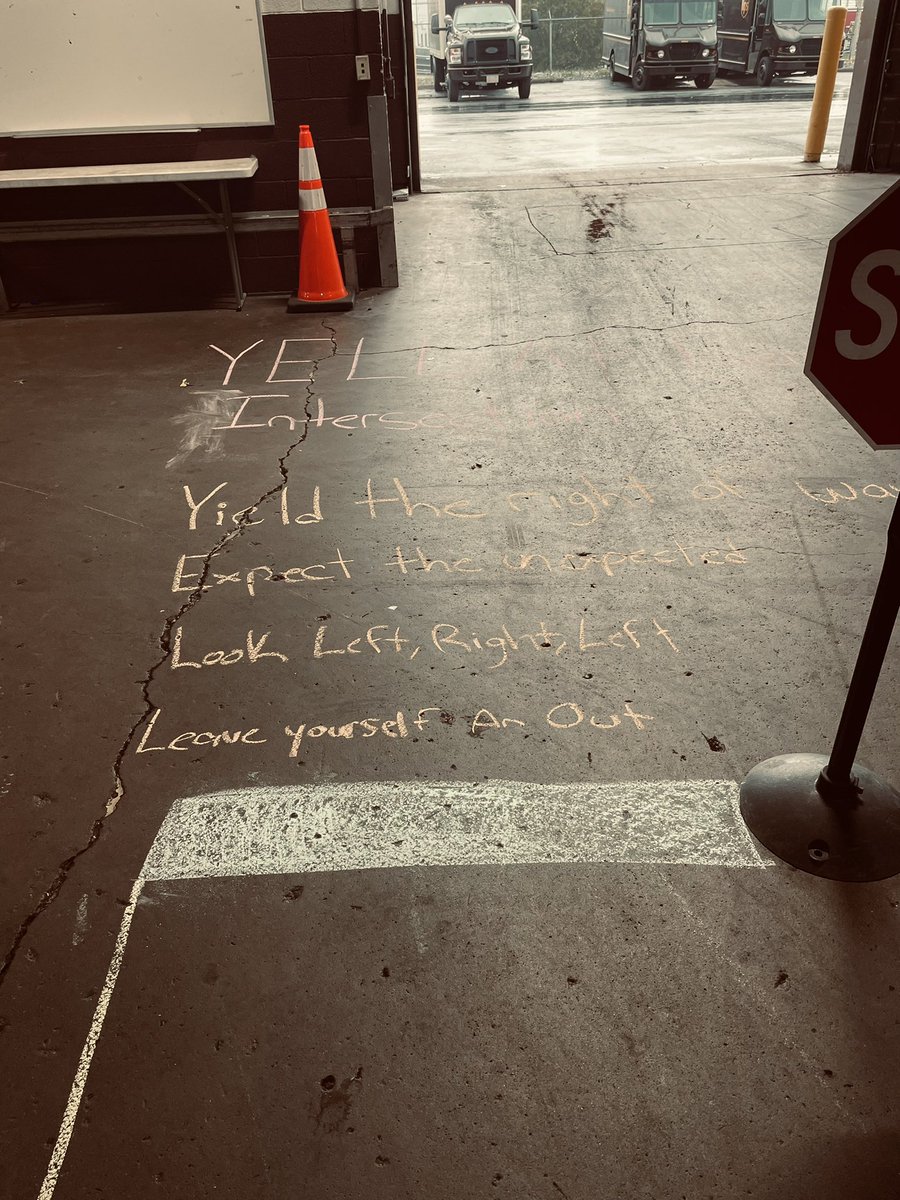 YEL
Intersec
Yield the right of Wa
Expect the unexpected
Look Left, Right, Left
Leave yourself An Out
S